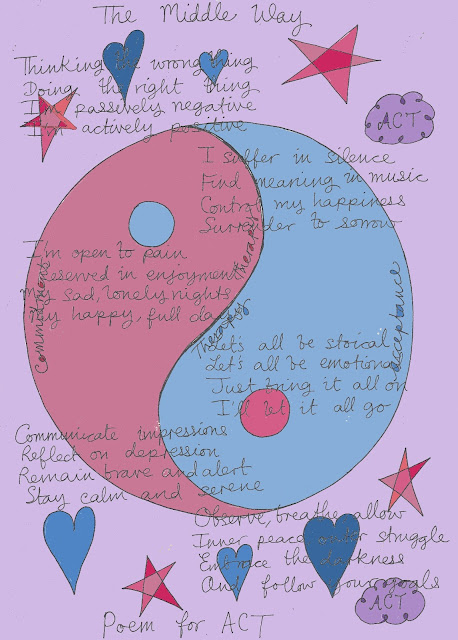 The Middle Way
Thinking the wrong thing
Doing the right thing
I'm passively negative
I'm actively positive
ACT
I suffer in silence
Find meaning in music
Control my happiness
Surrender to sorrow
I'm open to pain
Reserved in enjoyment
My sad, lonely nights
My happy, full days
commitment
therapy
therapy
acceptance
Let's all be stoical
Let's all be emotional
Just bring it all on
I'll let it all go
Communicate impressions
Reflect on depression
Remain brave and alert
Stay calm and serene
Observe, breathe, allow
Inner peace under struggle
Embrace the darkness
And follow your goals
ACT
Poem for ACT